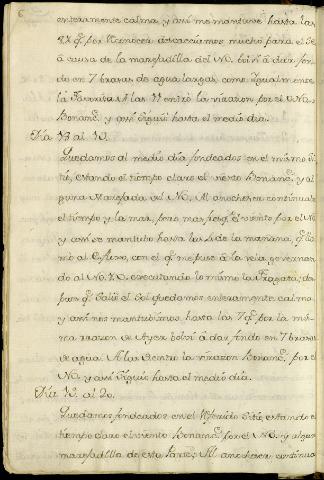 6
enteramente calma, y assi me mantuve hasta las
8 q.e por reconocer decaciamos mucho para el
á causa de la marejadilla del NO. bolvi á dar fon-
do en 7 brazas de agua largas, como igualmente
la Favorita. A las 11 entró la virazon por el NO.
Bonanc.e y assi siguió hasta el medio dia.
Dia 18 al 19.
Quedamos al medio dia fondeados en el mismo si-
tio, estando el tiempo claro el viento Bonanc.e y al-
guna Marejada del NO. Al anochecer continuaba
el tiempo y la mar, pero mas fresq.to el viento por el NO
y assi se mantubo hasta las 4 de la mañana, q.e lla-
mó al Este, con el q.e me puse á la vela governan-
do al NO. executando lo mismo la Fragata; des-
pues q.e salió el Sol quedamos enteramente calma
y assi nos mantubimos hasta las 7 q.e por la mis-
ma razon de Ayer bolví á dar fondo en 7 brazas
de agua. A las entro la virazon Bonanc.e por el
NO. y assi siguió hasta el medio dia.
Dia 19 al 20.
Quedamos fondeados en el referido Sitio estando el
tiempo claro el viento Bonanc.e por el NO. y alguna
marejadilla de esta parte. Al anochecer continua